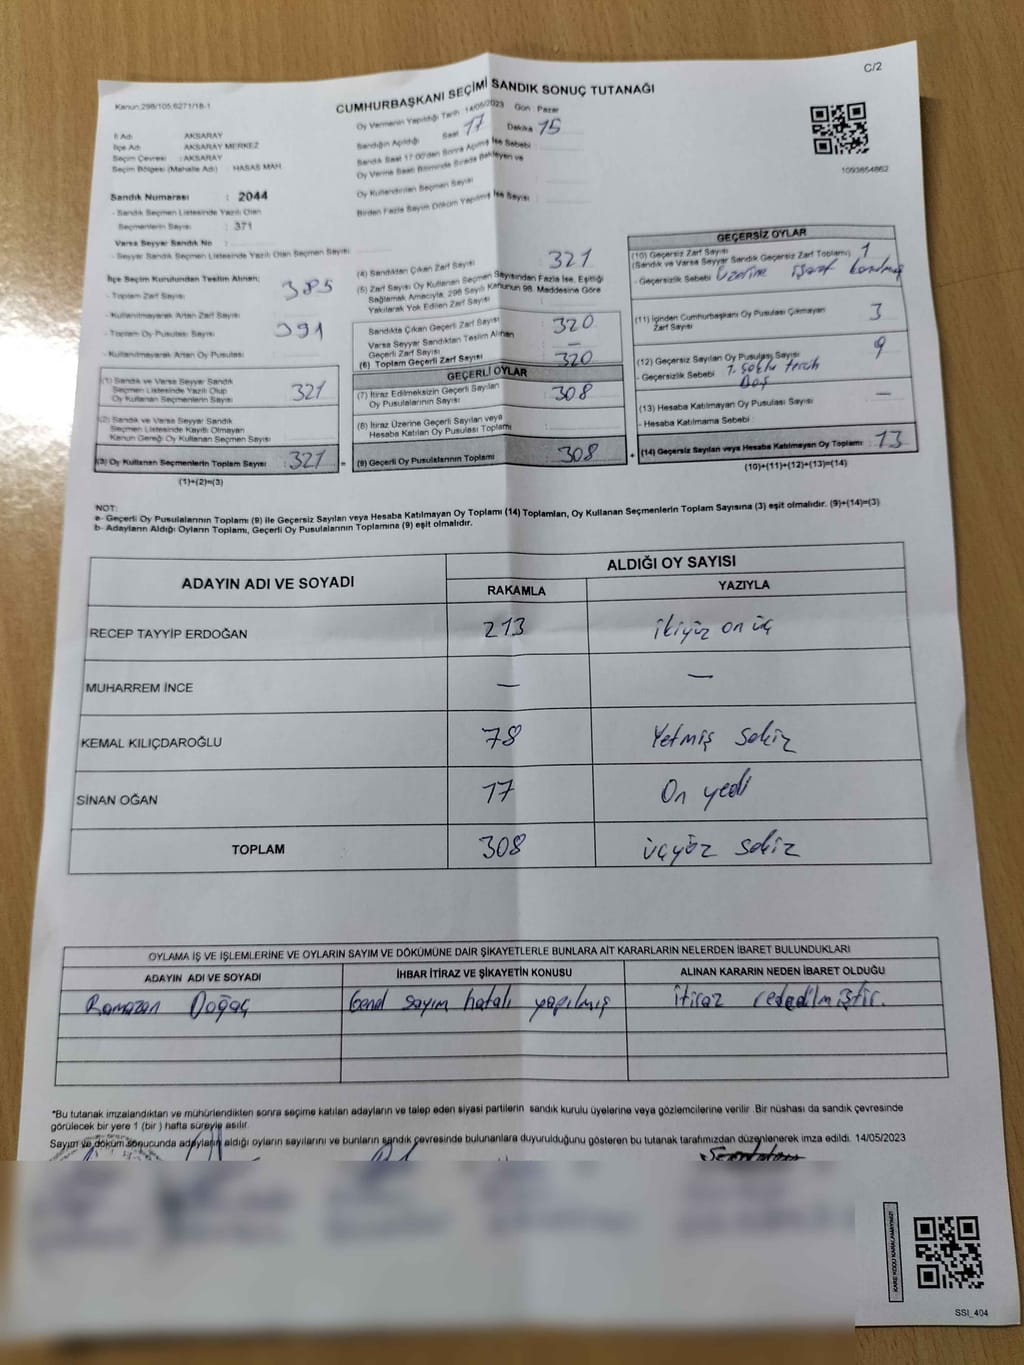 C/2
Kanun:298/105,6271/18-1
CUMHURBAŞKANI SEÇİMİ SANDIK SONUÇ TUTANAĞI
Oy Vermenin Yapıldığı Tarih 14/05/2023 Gün: Pazar
Sandığın Açıldığı Saat 17 Dakika 15
Sandık Saat 17:00'den Sonra Açılmış İse Sebebi
Oy Verme Saati Bitiminde Sırada Bekleyen ve
Oy Kullandırılan Seçmen Sayısı
Birden Fazla Sayım Döküm Yapılmış İse Sayısı
1093854862
İl Adı : AKSARAY
İlçe Adı : AKSARAY MERKEZ
Seçim Çevresi : AKSARAY
Seçim Bölgesi (Mahalle Adı) : HASAS MAH.
Sandık Numarası : 2044
- Sandık Seçmen Listesinde Yazılı Olan
Seçmenlerin Sayısı : 371
Varsa Seyyar Sandık No :
- Seyyar Sandık Seçmen Listesinde Yazılı Olan Seçmen Sayısı:
İlçe Seçim Kurulundan Teslim Alınan;
- Toplam Zarf Sayısı : 385
- Kullanılmayarak Artan Zarf Sayısı :
- Toplam Oy Pusulası Sayısı : 391
- Kullanılmayarak Artan Oy Pusulası :
(1) Sandık ve Varsa Seyyar Sandık
Seçmen Listesinde Yazılı Olup
Oy Kullanan Seçmenlerin Sayısı : 321
(2) Sandık ve Varsa Seyyar Sandık
Seçmen Listesinde Kayıtlı Olmayan
Kanun Gereği Oy Kullanan Seçmen Sayısı :
(3) Oy Kullanan Seçmenlerin Toplam Sayısı : 321 =
(1)+(2)=(3)
(4) Sandıktan Çıkan Zarf Sayısı : 321
(5) Zarf Sayısı Oy Kullanan Seçmen Sayısından Fazla İse, Eşitliği
Sağlamak Amacıyla, 298 Sayılı Kanunun 98. Maddesine Göre
Yakılarak Yok Edilen Zarf Sayısı
Sandıkta Çıkan Geçerli Zarf Sayısı : 320
Varsa Seyyar Sandıktan Teslim Alınan
Geçerli Zarf Sayısı : —
(6) Toplam Geçerli Zarf Sayısı : 320
GEÇERLİ OYLAR
(7) İtiraz Edilmeksizin Geçerli Sayılan
Oy Pusulalarının Sayısı : 308
(8) İtiraz Üzerine Geçerli Sayılan veya
Hesaba Katılan Oy Pusulası Toplamı :
(9) Geçerli Oy Pusulalarının Toplamı : 308 +
GEÇERSİZ OYLAR
(10) Geçersiz Zarf Sayısı
(Sandık ve Varsa Seyyar Sandık Geçersiz Zarf Toplamı) : 1
- Geçersizlik Sebebi : Üzerine işaret konulmuş
(11) İçinden Cumhurbaşkanı Oy Pusulası Çıkmayan
Zarf Sayısı : 3
(12) Geçersiz Sayılan Oy Pusulası Sayısı : 9
- Geçersizlik Sebebi : tercih
Boş
(13) Hesaba Katılmayan Oy Pusulası Sayısı : —
- Hesaba Katılmama Sebebi :
(14) Geçersiz Sayılan veya Hesaba Katılmayan Oy Toplamı : 13
(10)+(11)+(12)+(13)=(14)
NOT:
a- Geçerli Oy Pusulalarının Toplamı (9) ile Geçersiz Sayılan veya Hesaba Katılmayan Oy Toplamı (14) Toplamları, Oy Kullanan Seçmenlerin Toplam Sayısına (3) eşit olmalıdır. (9)+(14)=(3)
b- Adayların Aldığı Oyların Toplamı, Geçerli Oy Pusulalarının Toplamına (9) eşit olmalıdır.
ADAYIN ADI VE SOYADI
ALDIĞI OY SAYISI
RAKAMLA YAZIYLA
RECEP TAYYİP ERDOĞAN 213 ikiyüz on üç
MUHARREM İNCE — —
KEMAL KILIÇDAROĞLU 78 Yetmiş sekiz
SİNAN OĞAN 17 On yedi
TOPLAM 308 üçyüz sekiz
OYLAMA İŞ VE İŞLEMLERİNE VE OYLARIN SAYIM VE DÖKÜMÜNE DAİR ŞİKAYETLERLE BUNLARA AİT KARARLARIN NELERDEN İBARET BULUNDUKLARI
ADAYIN ADI VE SOYADI İHBAR İTİRAZ VE ŞİKAYETİN KONUSU ALINAN KARARIN NEDEN İBARET OLDUĞU
Ramazan Doğaç Genel sayım hatalı yapılmış itiraz rededilmiştir.
*Bu tutanak imzalandıktan ve mühürlendikten sonra seçime katılan adayların ve talep eden siyasi partilerin sandık kurulu üyelerine veya gözlemcilerine verilir .Bir nüshası da sandık çevresinde
görülecek bir yere 1 (bir ) hafta süreyle asılır.
Sayım ve döküm sonucunda adayların aldığı oyların sayılarını ve bunların sandık çevresinde bulunanlara duyurulduğunu gösteren bu tutanak tarafımızdan düzenlenerek imza edildi. 14/05/2023
KARE KODU KARALAMAYINIZ!
SSI_404